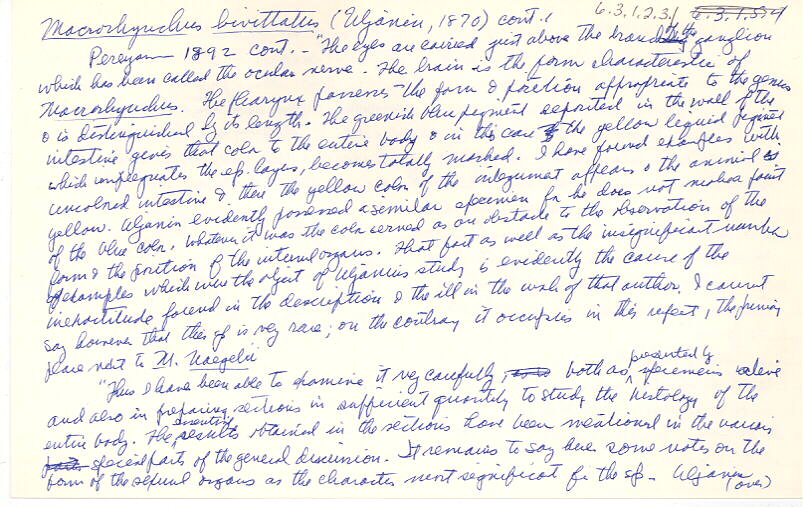 Macrorhynchus bivittatus (Uljanin, 1870) cont. 6.3.1.2.3.1
Pereyaslawzewa 1892 cont. - "The eyes are carried just above the brain ganglion
which has been called the ocular nerve. The brain is the form characteristic of
Macrorhynchus. The pharynx possesses the form & position appropriate to the genus
& is distinguished by its length. The greenish blue pigment deposited in the wall of the
intestine gives that color to the entire body & in this case the yellow liquid pigment
which impregnates the ep. layer, becomes totally masked. I have found examples with
uncolored intestine & there the yellow color of the integument appears & the animal is
yellow. Uljanin evidently possessed a similar specimen for he does not make a point
of the blue color. Whatever it was the color served as an obstacle to the observation of the
form & the position of the internal organs. That fact as well as the insignificant number
of examples which were the object of Uljanins study is evidently the cause of the
inexactitude found in the description & the ill in the work of that author. I cannot
say however that this sp is very rare; on the contrary it occupies in this respect, the primary
place next to M. Naegelii
"Thus I have been able to examine it very carefully, both as presented by specimens alive
and also in preparing sections in sufficient quantity to study the histology of the
entire body. The essential results obtained in the sections have been mentioned in the various
special parts of the general discussion. It remains to say here some notes on the
form of the sexual organs as the character most significant for the sp. - Uljanin
(over)